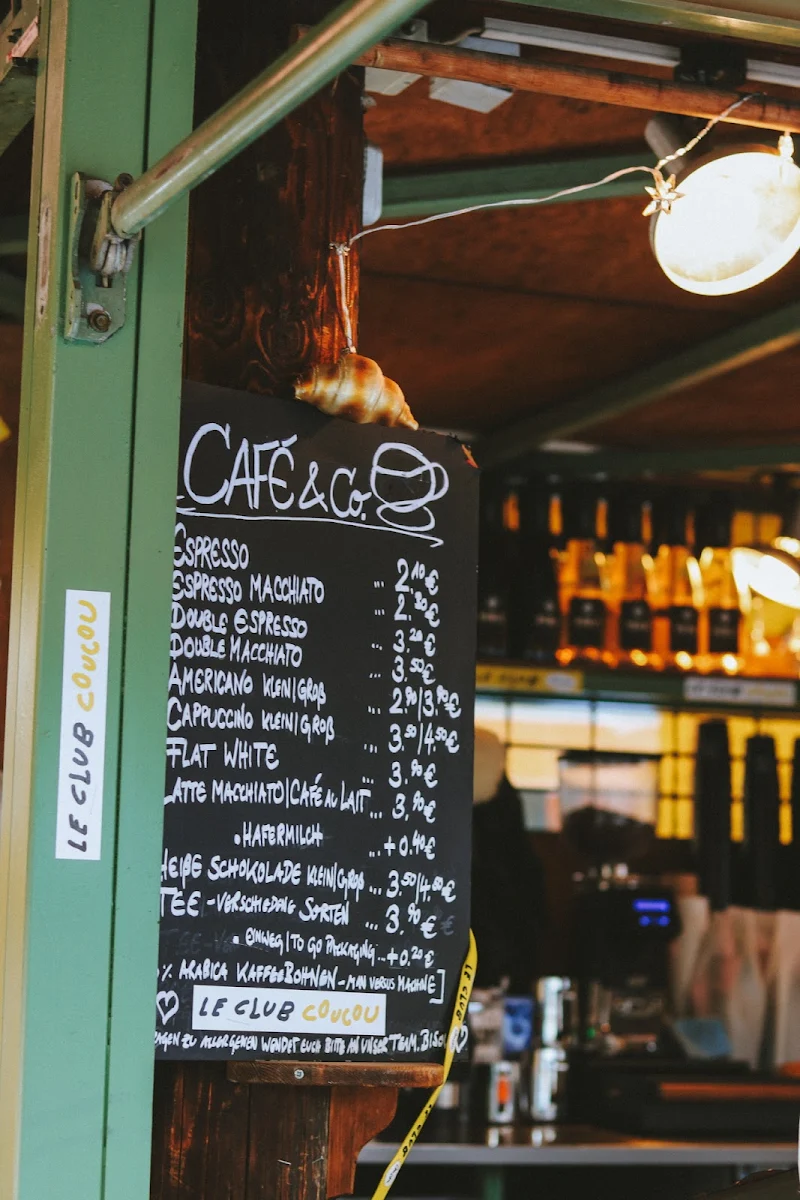 CAFÉ & Co.
ESPRESSO ... 2.10€
ESPRESSO MACCHIATO ... 2.30€
DOUBLE ESPRESSO ... 3.20€
DOUBLE MACCHIATO ... 3.50€
AMERICANO KLEIN|GROß ... 2.90|3.90€
CAPPUCCINO KLEIN|GROß ... 3.50|4.50€
FLAT WHITE ... 3.90€
LATTE MACCHIATO|CAFÉ AU LAIT ... 3.90€
• HAFERMILCH ... +0.40€
HEIßE SCHOKOLADE KLEIN|GROß ... 3.50|4.50€
TEE - VERSCHIEDENE SORTEN ... 3.90€
• EINWEG|TO GO PACKAGING ... +0.20€
% ARABICA KAFFEEBOHNEN - MAN VERSUS MACHINE]
LE CLUB COUCOU
AGEN ZU ALLERGENEN WENDET EUCH BITTE AN UNSER TEAM.
LE CLUB COUCOU
LE CLUB